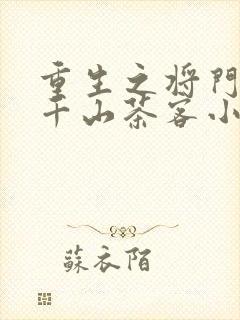 重生之将门
千山茶客小
蘇衣陌